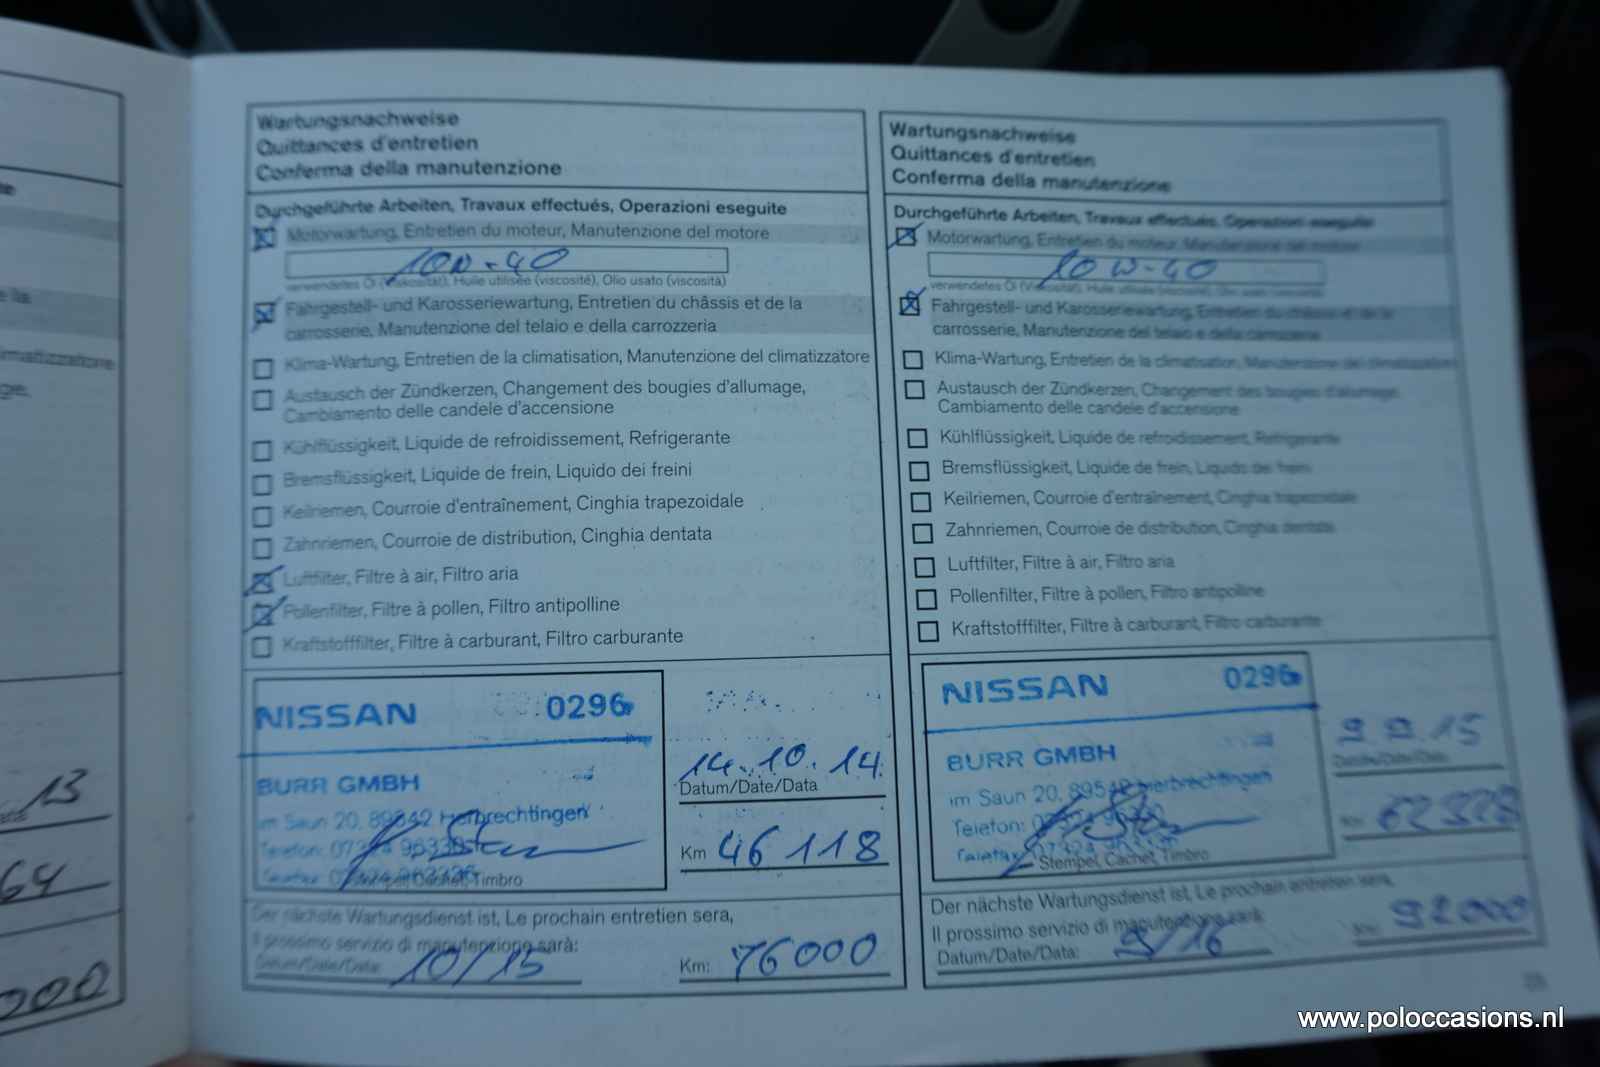 Wartungsnachweise
Quittances d'entretien
Conferma della manutenzione
Durchgeführte Arbeiten, Travaux effectués, Operazioni eseguite
Motorwartung, Entretien du moteur, Manutenzione del motore
10W-40
verwendetes Öl (Viskosität), Huile utilisée (viscosité), Olio usato (viscosità)
Fahrgestell- und Karosseriewartung, Entretien du châssis et de la
carrosserie, Manutenzione del telaio e della carrozzeria
Klima-Wartung, Entretien de la climatisation, Manutenzione del climatizzatore
Austausch der Zündkerzen, Changement des bougies d'allumage,
Cambiamento delle candele d'accensione
Kühlflüssigkeit, Liquide de refroidissement, Refrigerante
Bremsflüssigkeit, Liquide de frein, Liquido dei freini
Keilriemen, Courroie d'entraînement, Cinghia trapezoidale
Zahnriemen, Courroie de distribution, Cinghia dentata
Luftfilter, Filtre à air, Filtro aria
Pollenfilter, Filtre à pollen, Filtro antipolline
Kraftstofffilter, Filtre à carburant, Filtro carburante
NISSAN 0296
BURR GMBH
im Saun 20, 89542 Herbrechtingen
Telefon: 07324
Stempel, Cachet, Timbro
14.10.14.
Datum/Date/Data
Km 46118
Der nächste Wartungsdienst ist, Le prochain entretien sera,
Il prossimo servizio di manutenzione sarà:
Datum/Date/Data: 10/15
Km: 76000
Wartungsnachweise
Quittances d'entretien
Conferma della manutenzione
Durchgeführte Arbeiten, Travaux effectués, Operazioni eseguite
Motorwartung, Entretien du moteur, Manutenzione del motore
10W-40
verwendetes Öl (Viskosität), Huile utilisée (viscosité), Olio usato (viscosità)
Fahrgestell- und Karosseriewartung, Entretien du châssis et de la
carrosserie, Manutenzione del telaio e della carrozzeria
Klima-Wartung, Entretien de la climatisation, Manutenzione del climatizzatore
Austausch der Zündkerzen, Changement des bougies d'allumage,
Cambiamento delle candele d'accensione
Kühlflüssigkeit, Liquide de refroidissement, Refrigerante
Bremsflüssigkeit, Liquide de frein, Liquido dei freini
Keilriemen, Courroie d'entraînement, Cinghia trapezoidale
Zahnriemen, Courroie de distribution, Cinghia dentata
Luftfilter, Filtre à air, Filtro aria
Pollenfilter, Filtre à pollen, Filtro antipolline
Kraftstofffilter, Filtre à carburant, Filtro carburante
NISSAN 0296
BURR GMBH
im Saun 20, 89542 Herbrechtingen
Telefon: 07324
Stempel, Cachet, Timbro
9.9.15
Datum/Date/Data
Km
Der nächste Wartungsdienst ist, Le prochain entretien sera,
Il prossimo servizio di manutenzione sarà:
Datum/Date/Data: 9/16
Km: 92000
www.poloccasions.nl